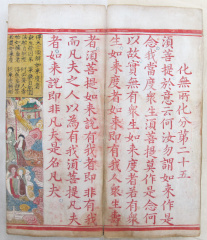 化無所化分第二十五
須菩提於意云何汝勿謂如來作是
念我當度衆生須菩提莫作是念何
以故實無有衆生如來度者若有衆
生如來度者如來即有我人衆生壽
者須菩提如來說有我者即非有我
而凡夫之人以為有我須菩提凡夫
者如來說即非凡夫是名凡夫